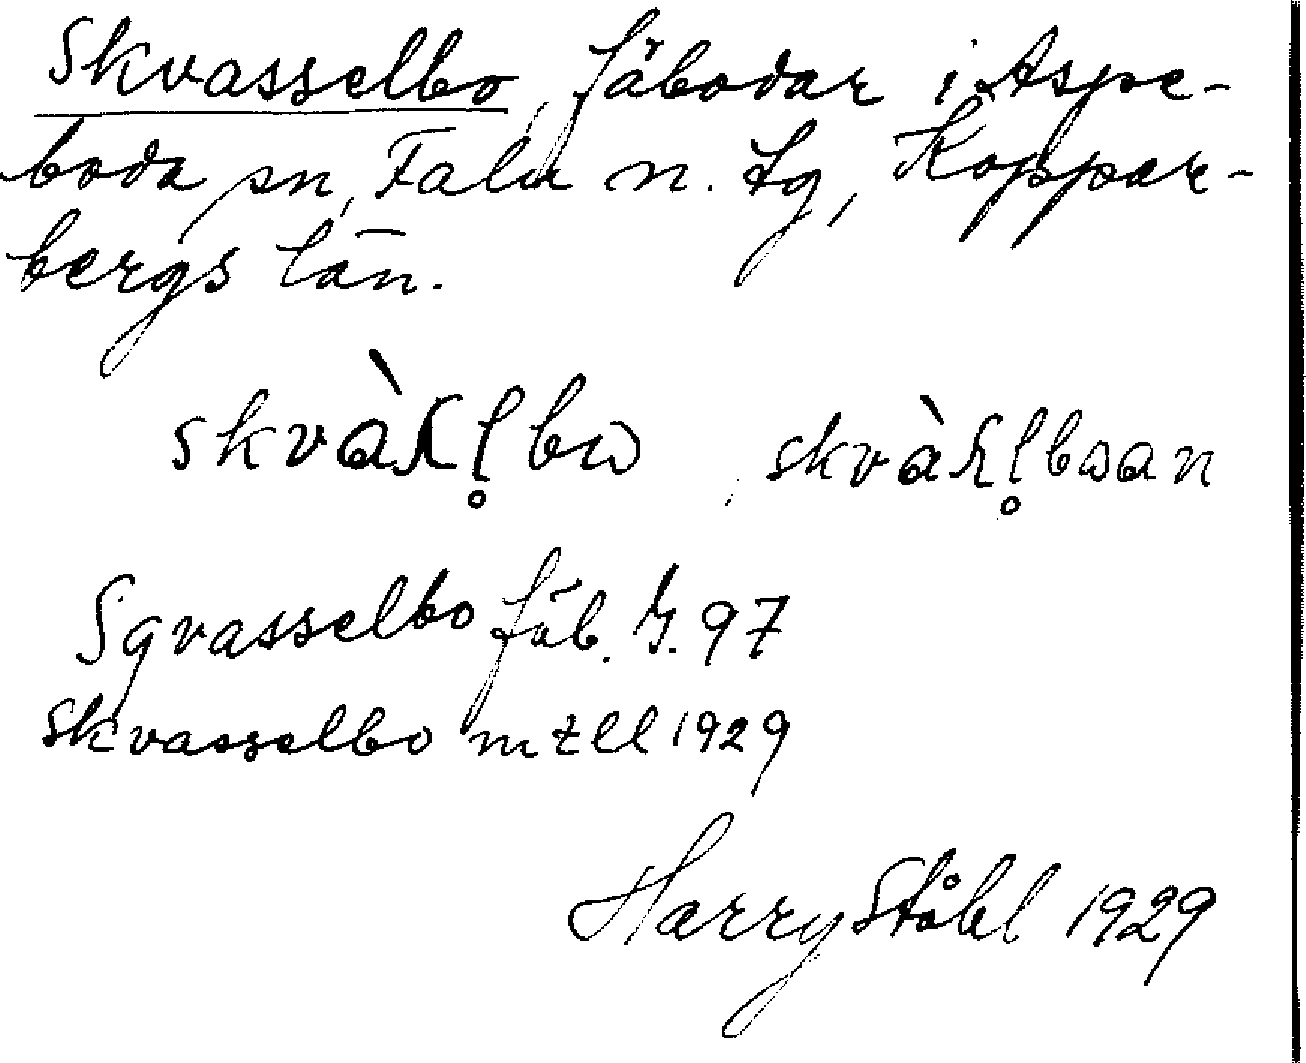 Skvasselbo, fäbodar i Aspe-
boda sn, Falu n. tg, Koppar-
bergs län.
Sqvasselbo fäb. G. 97
Skvasselbo mtll 1929
Harry Ståhl 1929